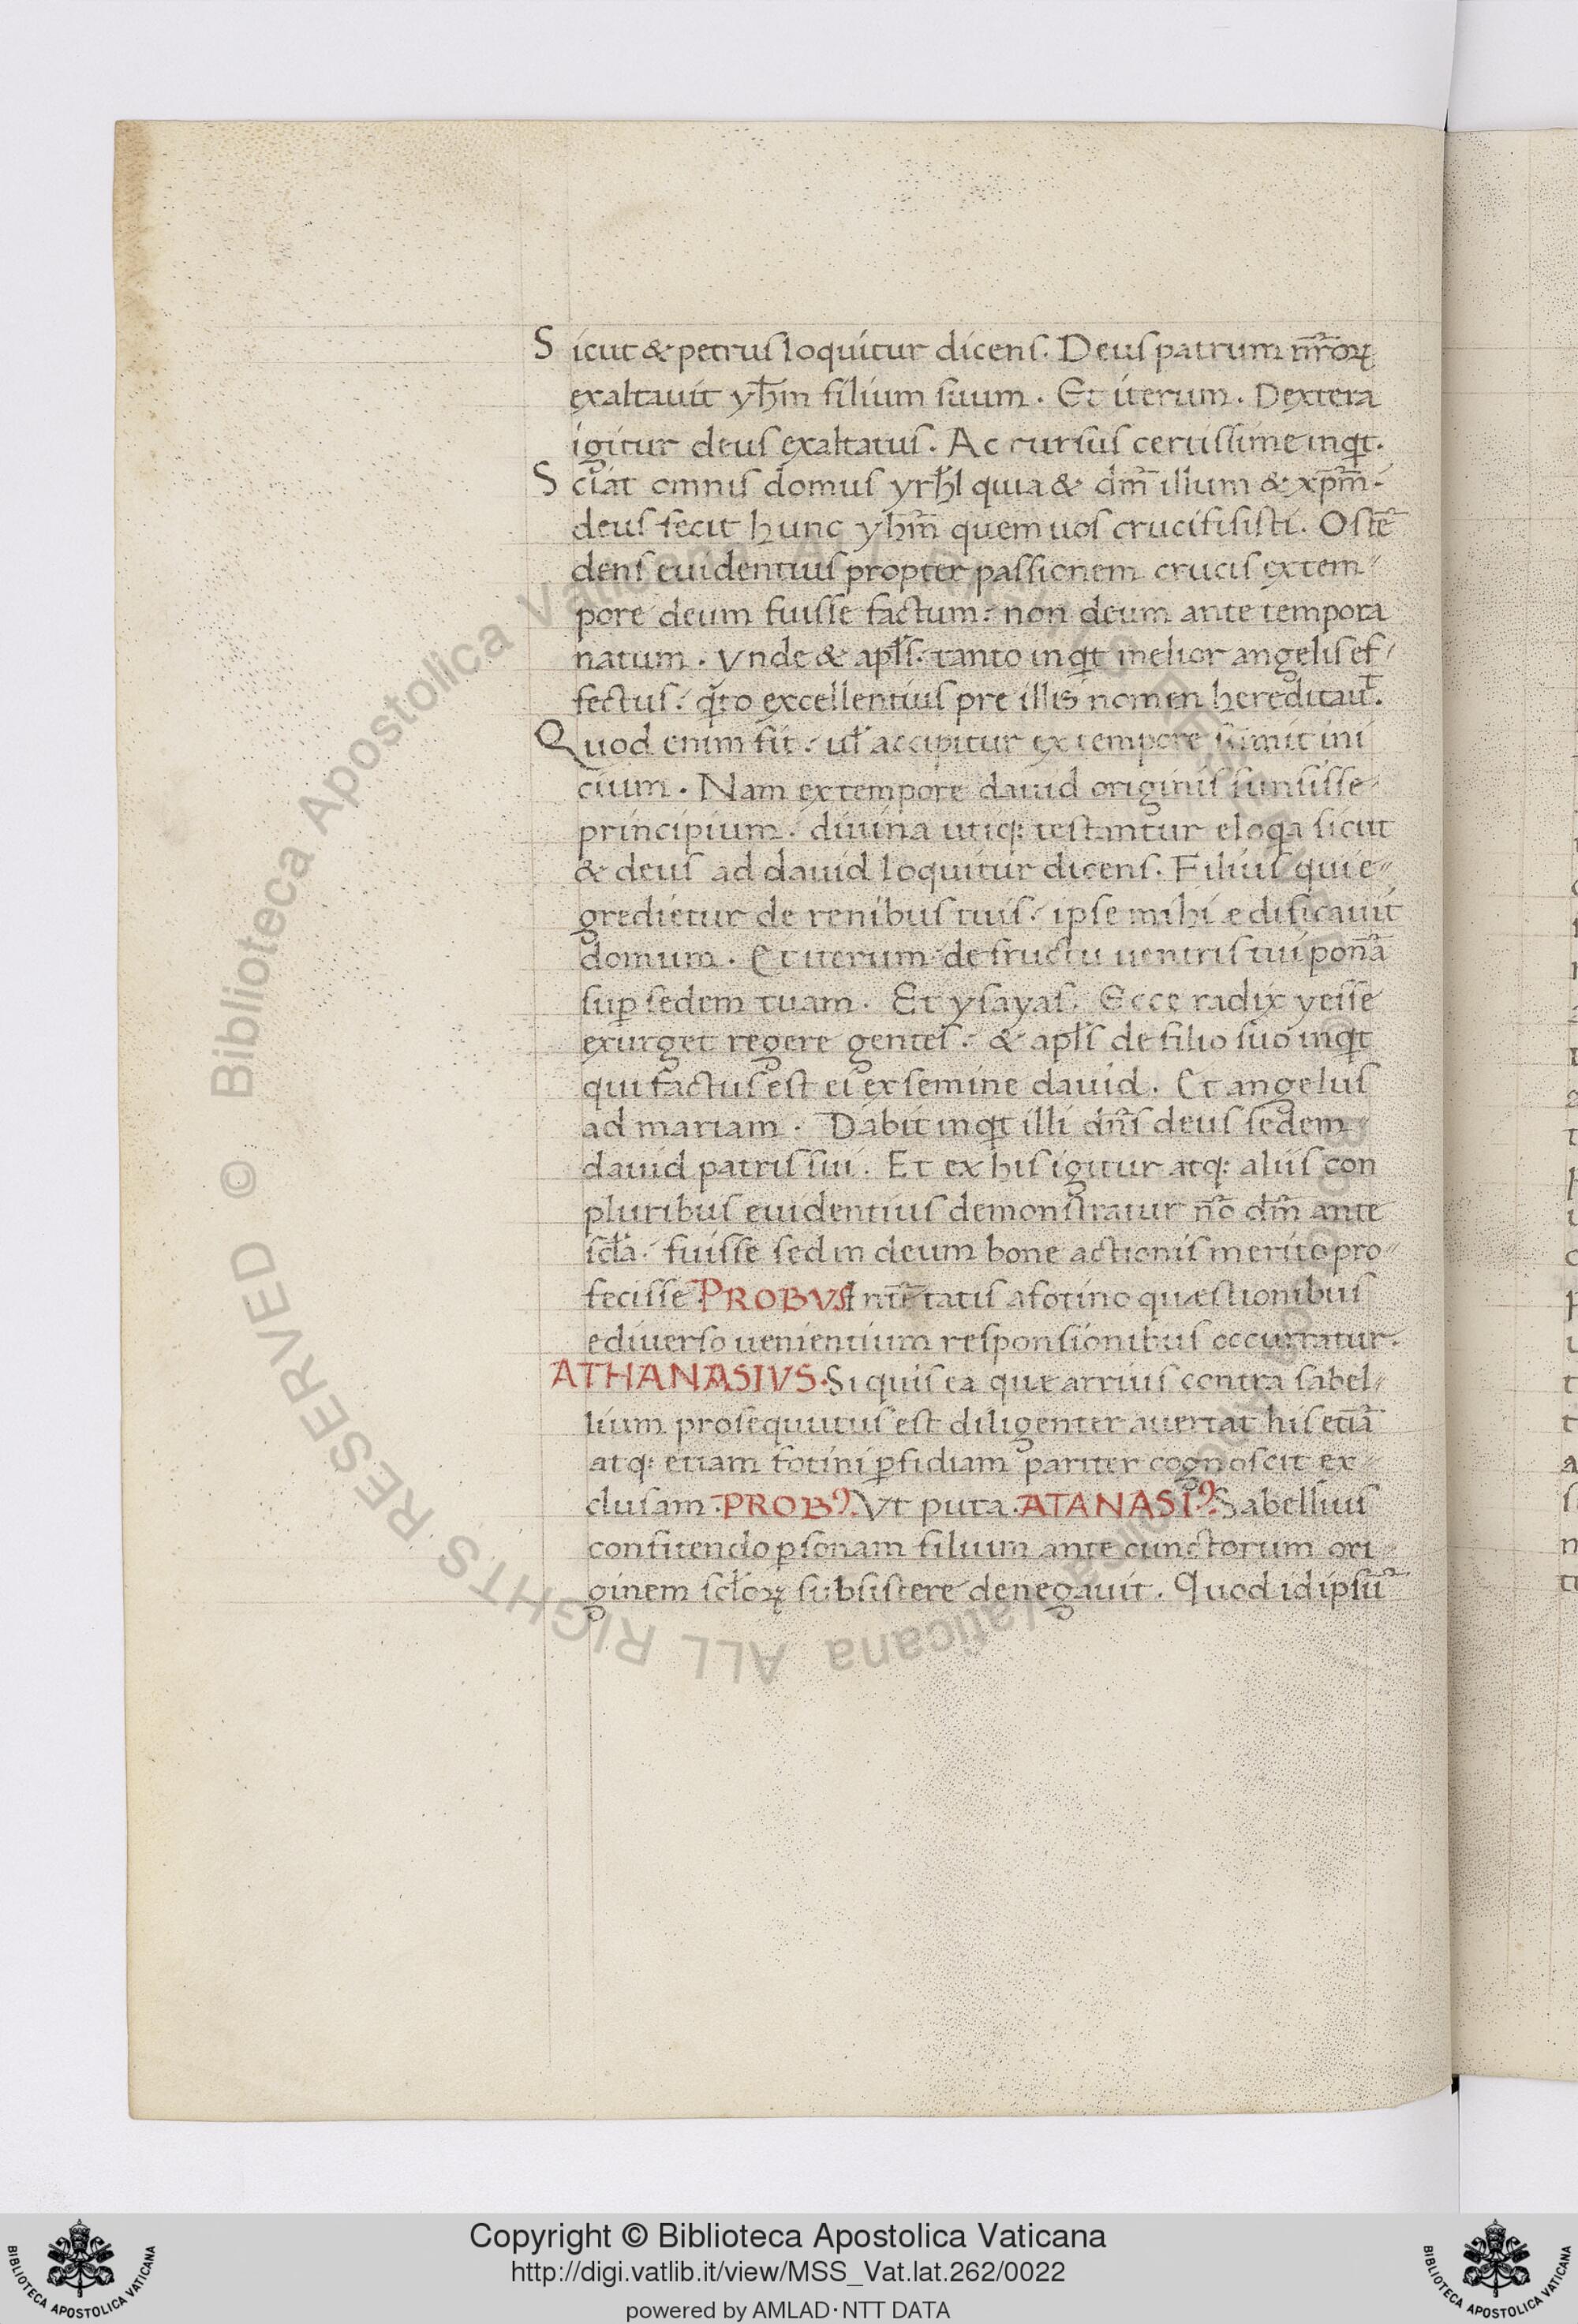 Sicut & petrus loquitur dicens. Deus patrum nr̄oꝝ
exaltauit yh̄m filium suum. Et iterum. Dextera
igitur deus exaltatus. Ac rursus certissime inqͥt.
Sciat omnis domus yrh̄l quia & dm̄ illum & xp̄m
deus fecit hunc yh̄m quem uos crucifisisti. Ostē
dens euidentius propter passionem crucis ex tem-
pore deum fuisse factum. non deum ante tempora
natum. Vnde & apl̄s. tanto inqͥt melior angelis ef-
fectus. qͣto excellentius pre illis nomen hereditauͭ.
Quod enim fit. ul̄ accipitur ex tempore sumit ini
cium. Nam ex tempore dauid originis sumsisse
principium. diuina utiqꝫ testantur eloqͣ sicut
& deus ad dauid loquitur dicens. Filius qui e-
gredietur de renibus tuis. ipse mihi edificauit
domum. Et iterum de fructu uentris tui ponā
suꝑ sedem tuam. Et ysayas. Ecce radix yesse
exurget regere gentes. & apl̄s de filio suo inqͥt
qui factus est ei ex semine dauid. Et angelus
ad mariam. Dabit inqͥt illi dn̄s deus sedem
dauid patris sui. Et ex his igitur atqꝫ aliis con
pluribus euidentius demonstratur nō dm̄ ante
scl̄a. fuisse sed in deum bone actionis merito pro-
fecisse. PROBVS Intētatis a fotino quæstionibus
e diuerso uenientium responsionibus occurratur.
ATHANASIVS. Si quis ea quæ arrius contra sabel-
lium prosequutus est diligenter auertat his etiā
atqꝫ etiam fotini ꝑfidiam pariter cognoscit ex-
clusam. PROBꝰ. Vt puta. ATANASIꝰ. Sabellius
confitendo ꝑsonam filium ante cunctorum ori
ginem scl̄oꝝ subsistere denegauit. Quod id ipsū
Copyright © Biblioteca Apostolica Vaticana
http://digi.vatlib.it/view/MSS_Vat.lat.262/0022
powered by AMLAD·NTT DATA
© Biblioteca Apostolica Vaticana ALL RIGHTS RESERVED
BIBLIOTECA APOSTOLICA VATICANA
BIBLIOTECA APOSTOLICA VATICANA